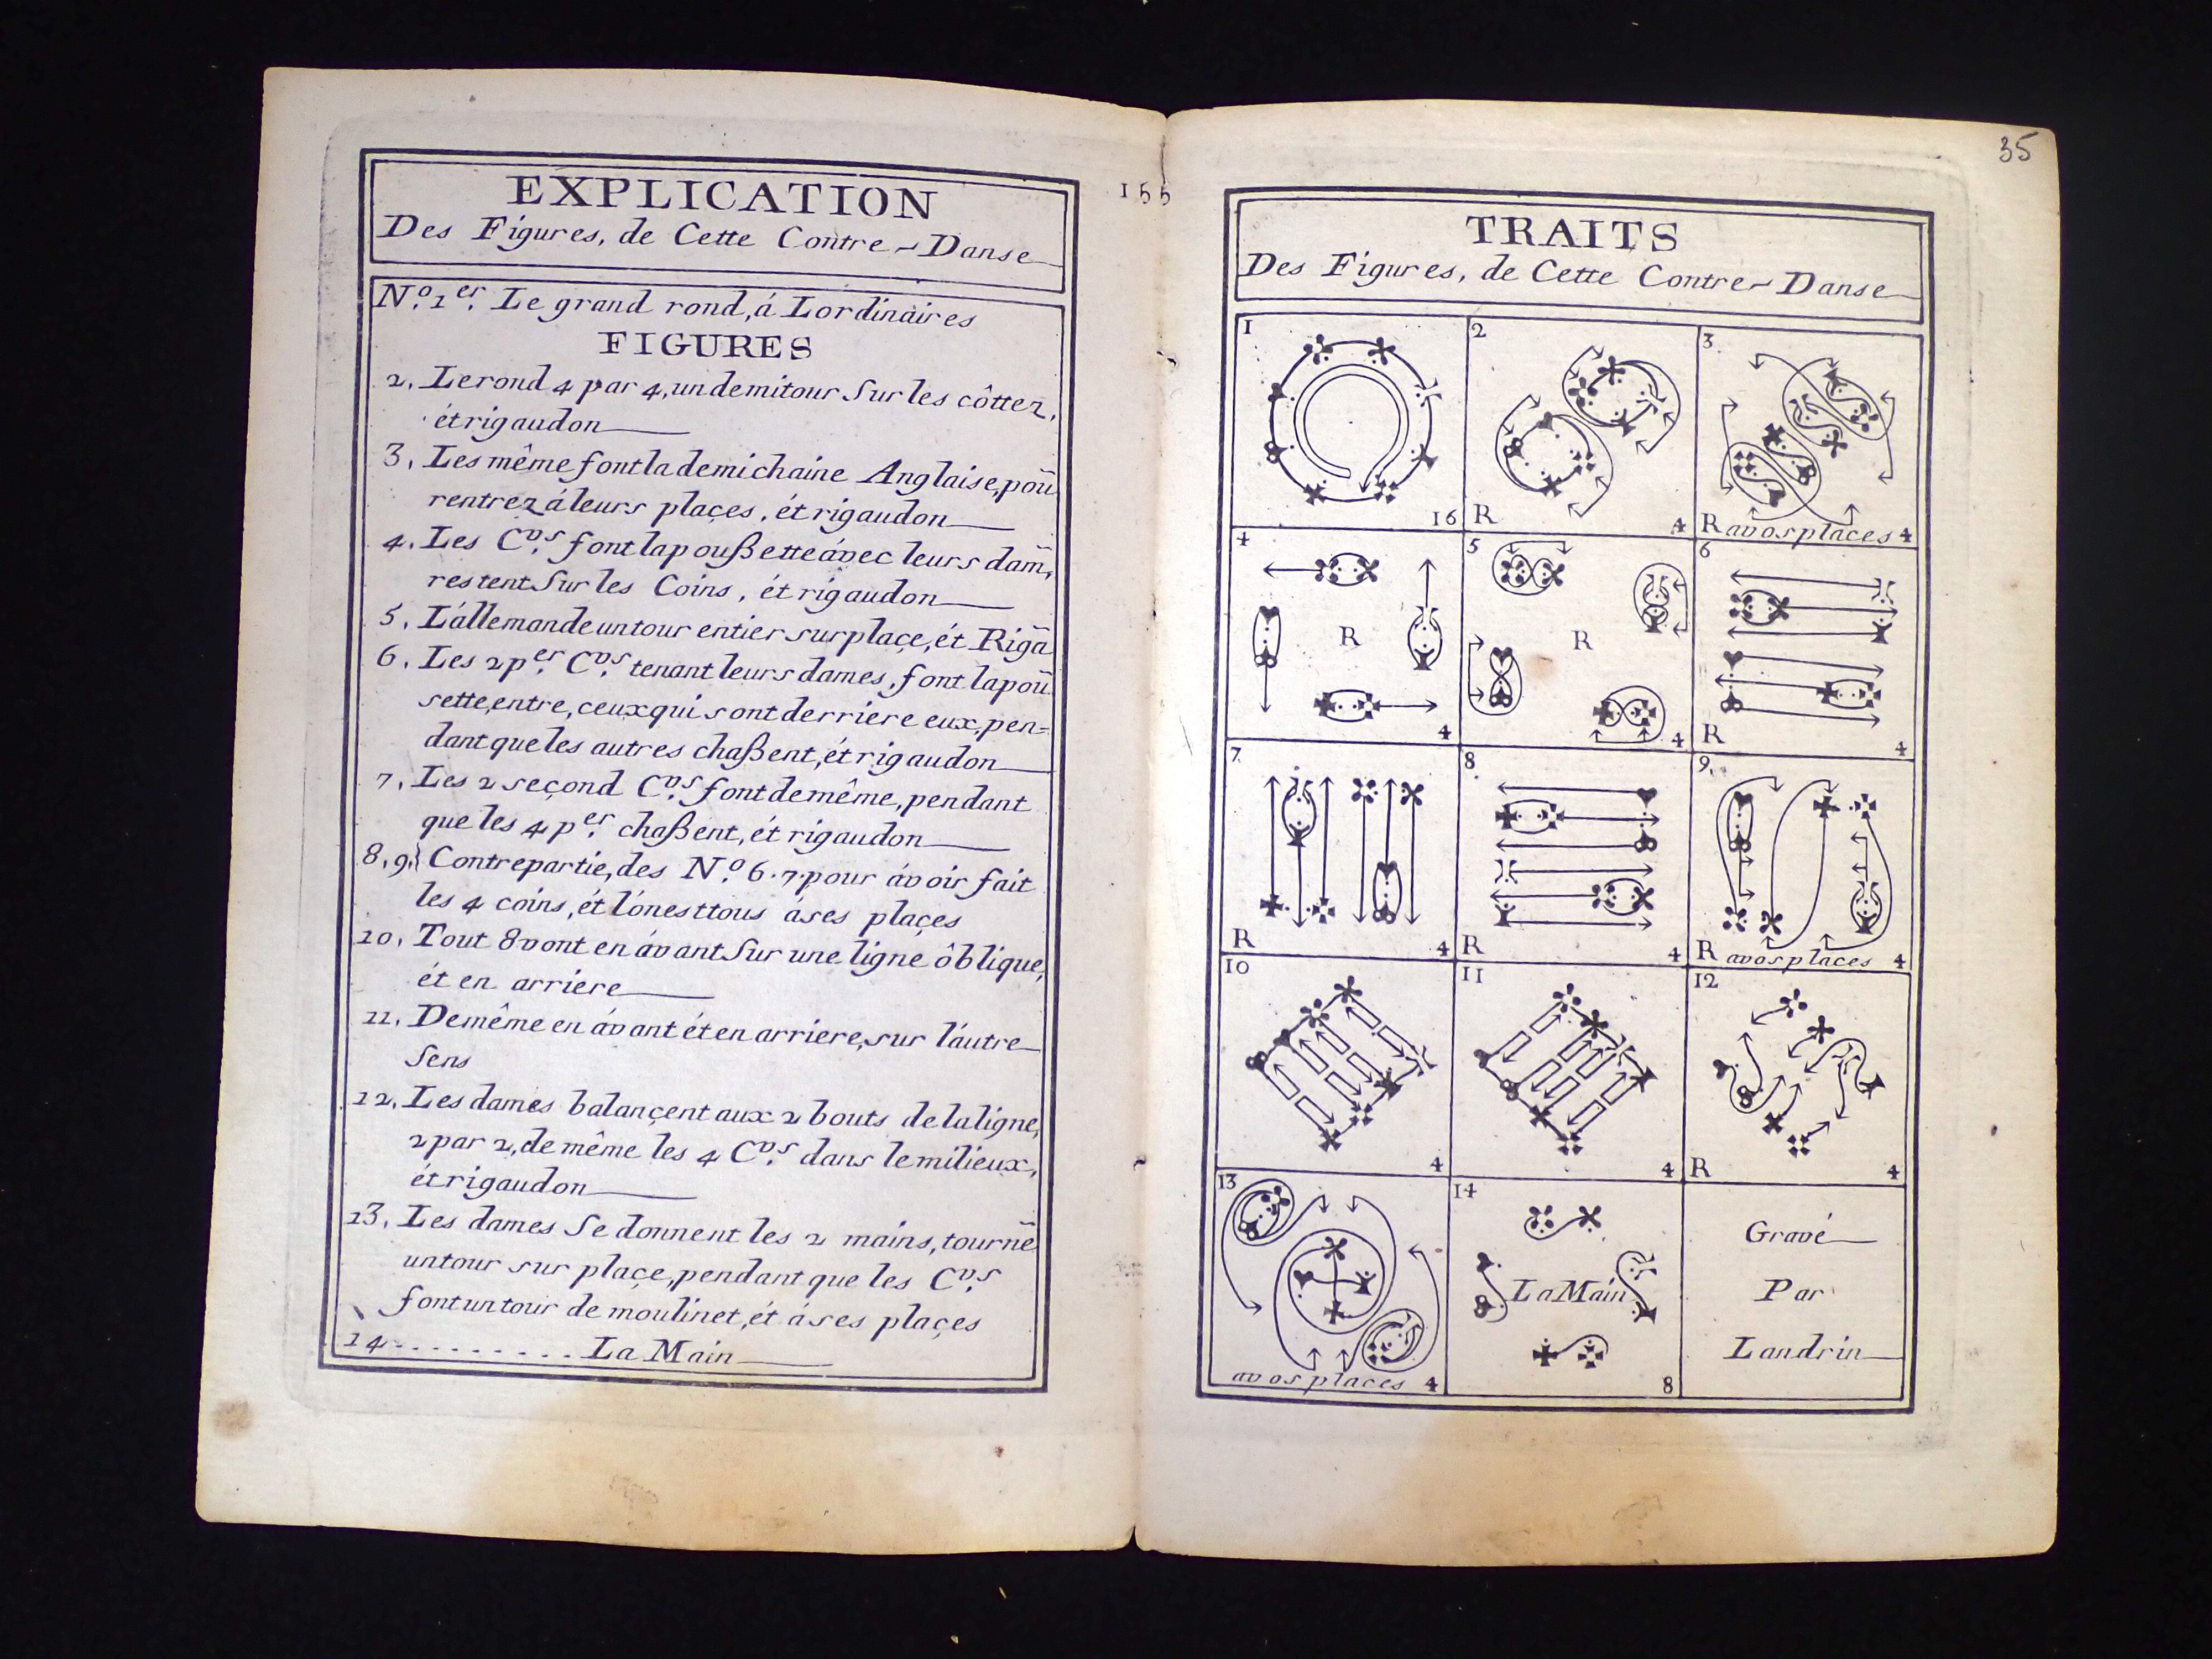 EXPLICATION
Des Figures, de Cette Contre-Danse
N.º 1.er Le grand rond, á Lordinaires
FIGURES
2, Le rond 4 par 4, un demi tour Sur les côttez,
ét rigaudon
3, Les même font la demi chaine Anglaise, pou̅
rentrez á leurs plaçes, ét rigaudon
4, Les C.vrs font la poußette ávec leurs dam̅,
restent Sur les Coins, ét rigaudon
5, Lállemande un tour entier sur plaçe, ét Riga̅
6, Les 2 p.er C.vrs tenant leurs dames, font la pou̅
sette, entre, ceux qui sont derriere eux, pen=
dant que les autres chaßent, ét rigaudon
7, Les 2 seçond C.vrs font de même, pendant
que les 4 p.er chaßent, ét rigaudon
8, 9, Contrepartie, des N.º 6.7. pour ávoir fait
les 4 coins, ét lónest tous á ses plaçes
10, Tout 8 vont en ávant Sur une ligne ôblique,
ét en arriere
11, De même en ávant ét en arriere, sur láutre
Sens
12, Les dames balançent aux 2 bouts de la ligne,
2 par 2, de même les 4 C.vrs dans le milieux,
ét rigaudon
13, Les dames Se donnent les 2 mains, tourne̅
un tour sur plaçe, pendant que les C.vrs
font un tour de moulinet, ét á ses plaçes
14.......... La Main
155
35
TRAITS
Des Figures, de Cette Contre-Danse
1
16
2
R 4
3.
R a vos places 4
4
R
4
5
R
4
6
R 4
7
R 4
8
R 4
9
R a vos places 4
10
4
11
4
12
R 4
13
a vos places 4
14
La Main
8
Gravé
Par
Landrin